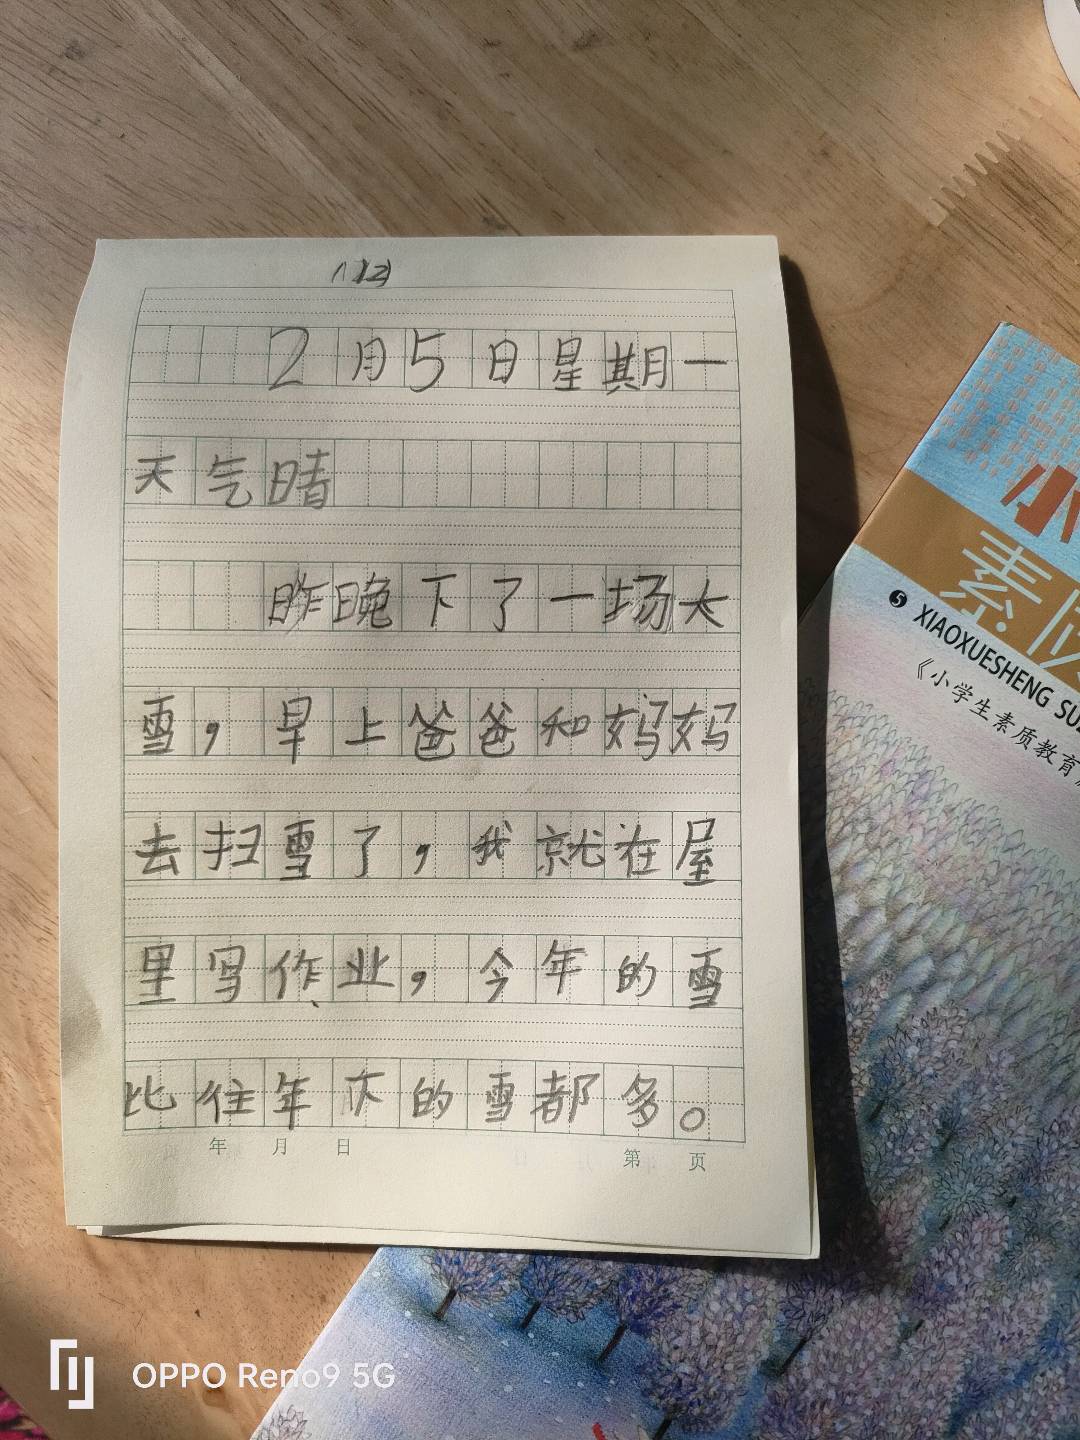 (12)
2月5日星期一
天气晴
昨晚下了一场大
雪，早上爸爸和妈妈
去扫雪了，我就在屋
里写作业，今年的雪
比往年下的雪都多。
年 月 日 第 页
小
素质
❺ XIAOXUESHENG SU
《小学生素质教育
OPPO Reno9 5G